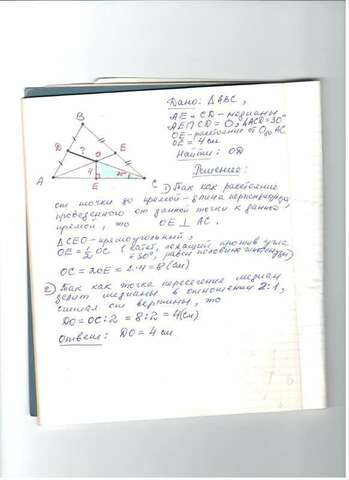 Дано: △ABC,
AE и CD – медианы
AE∩CD = O; ∠ACD=30°
OE – расстояние от O до AC
OE = 4 см
Найти: OD
Решение:
B
D
?
O
E
4
30°
A
E
C
1) Так как расстояние
от точки до прямой – длина перпендикуляра
проведенного от данной точки к данной
прямой, то OE ⊥ AC.
△CEO – прямоугольный,
OE = 1/2 OC (катет, лежащий против угла
в 30°, равен половине гипотенузы)
OC = 2OE = 2·4 = 8 (см)
2) Так как точка пересечения медиан
делит медианы в отношении 2:1,
считая от вершины, то
DO = OC:2 = 8:2 = 4 (см)
Ответ: DO = 4 см